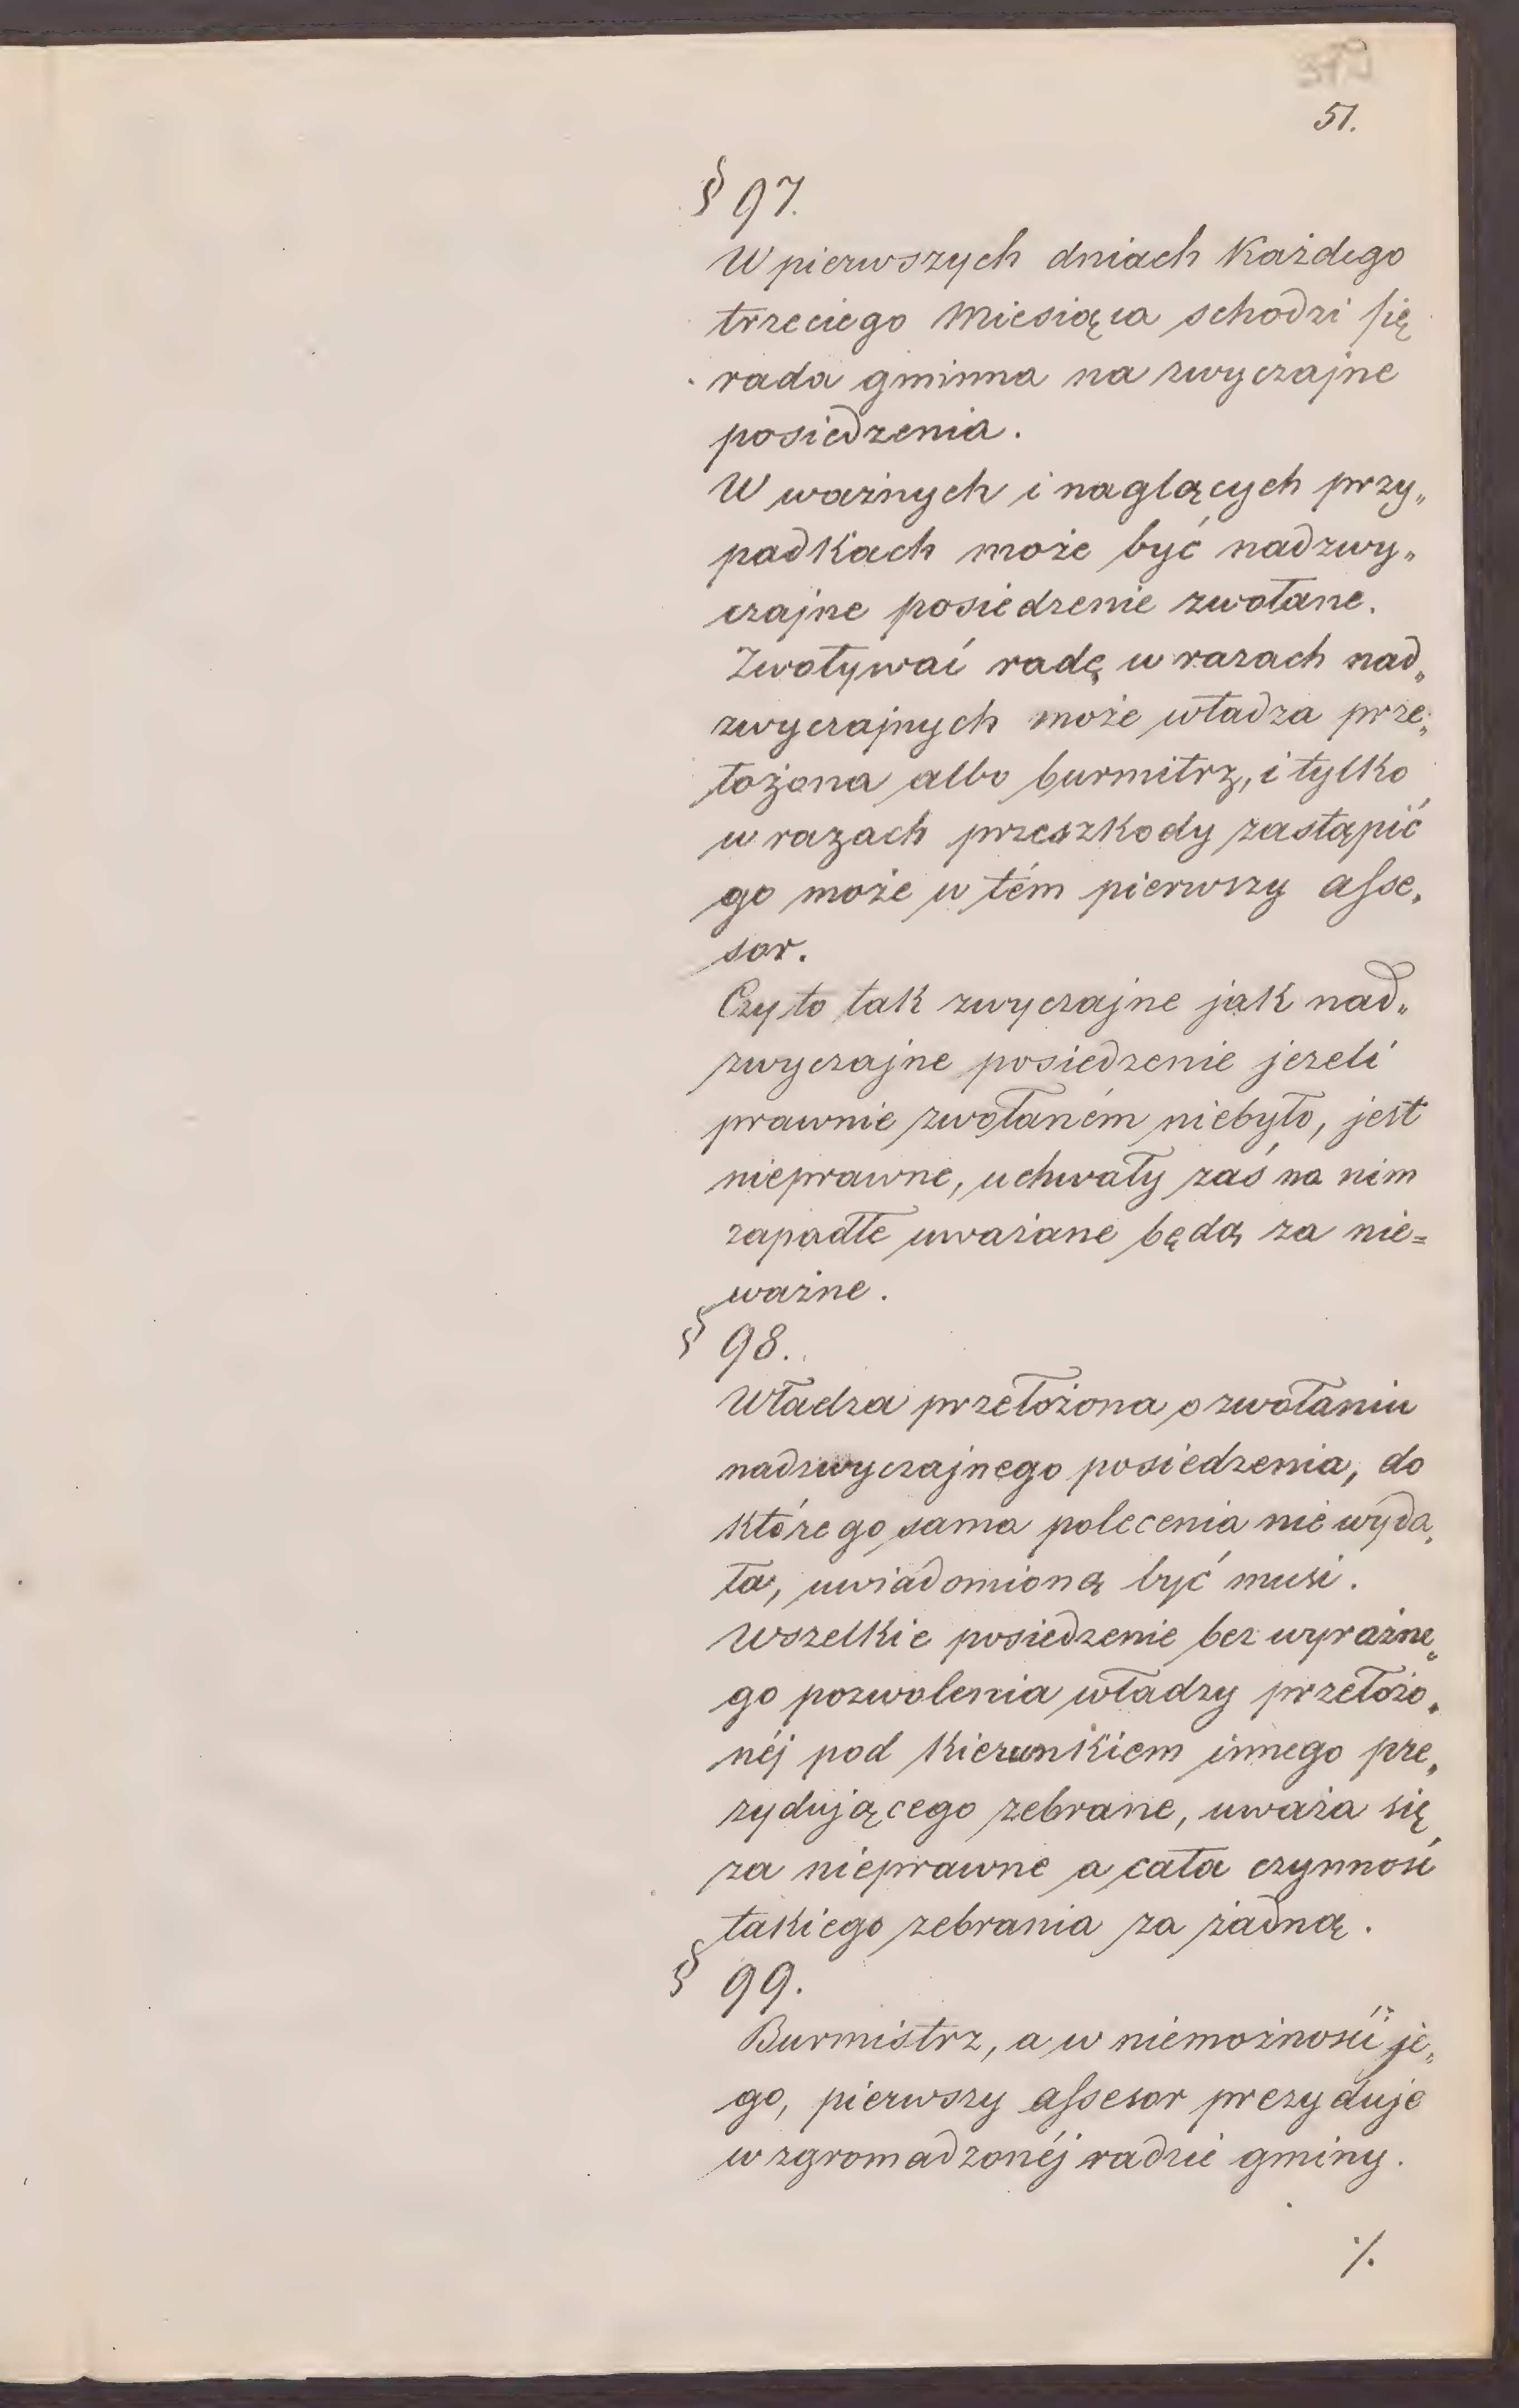 51.
§ 97.
W pierwszych dniach każdego
trzeciego miesiąca schodzi się
rada gminna na zwyczajne
posiedzenia.
W ważnych i naglących przy„
padkach może być nadzwy„
czajne posiedzenie zwołane.
Zwoływać radę w razach nad„
zwyczajnych może władza prze„
łożona albo burmitrz, i tylko
w razach przeszkody zastąpić
go może w tém pierwszy asse„
sor.
Czy to tak zwyczajne jak nad„
zwyczajne posiedzenie jeżeli
prawnie zwołaném niebyło, jest
nieprawne, uchwały zaś na nim
zapadłe uważane będą za nie=
ważne.
§ 98.
Władza przełożona o zwołaniu
nadzwyczajnego posiedzenia, do
którego sama polecenia nie wyda„
ła, uwiadomioną być musi.
Wszelkie posiedzenie bez wyraźne„
go pozwolenia władzy przełożo„
néj pod kierunkiem innego pre„
zydującego zebrane, uważa się
za nieprawne a cała czynność
takiego zebrania za żadną.
§ 99.
Burmistrz, a w niemożności je„
go, pierwszy assesor prezyduje
w zgromadzonéj radzie gminy.
./.